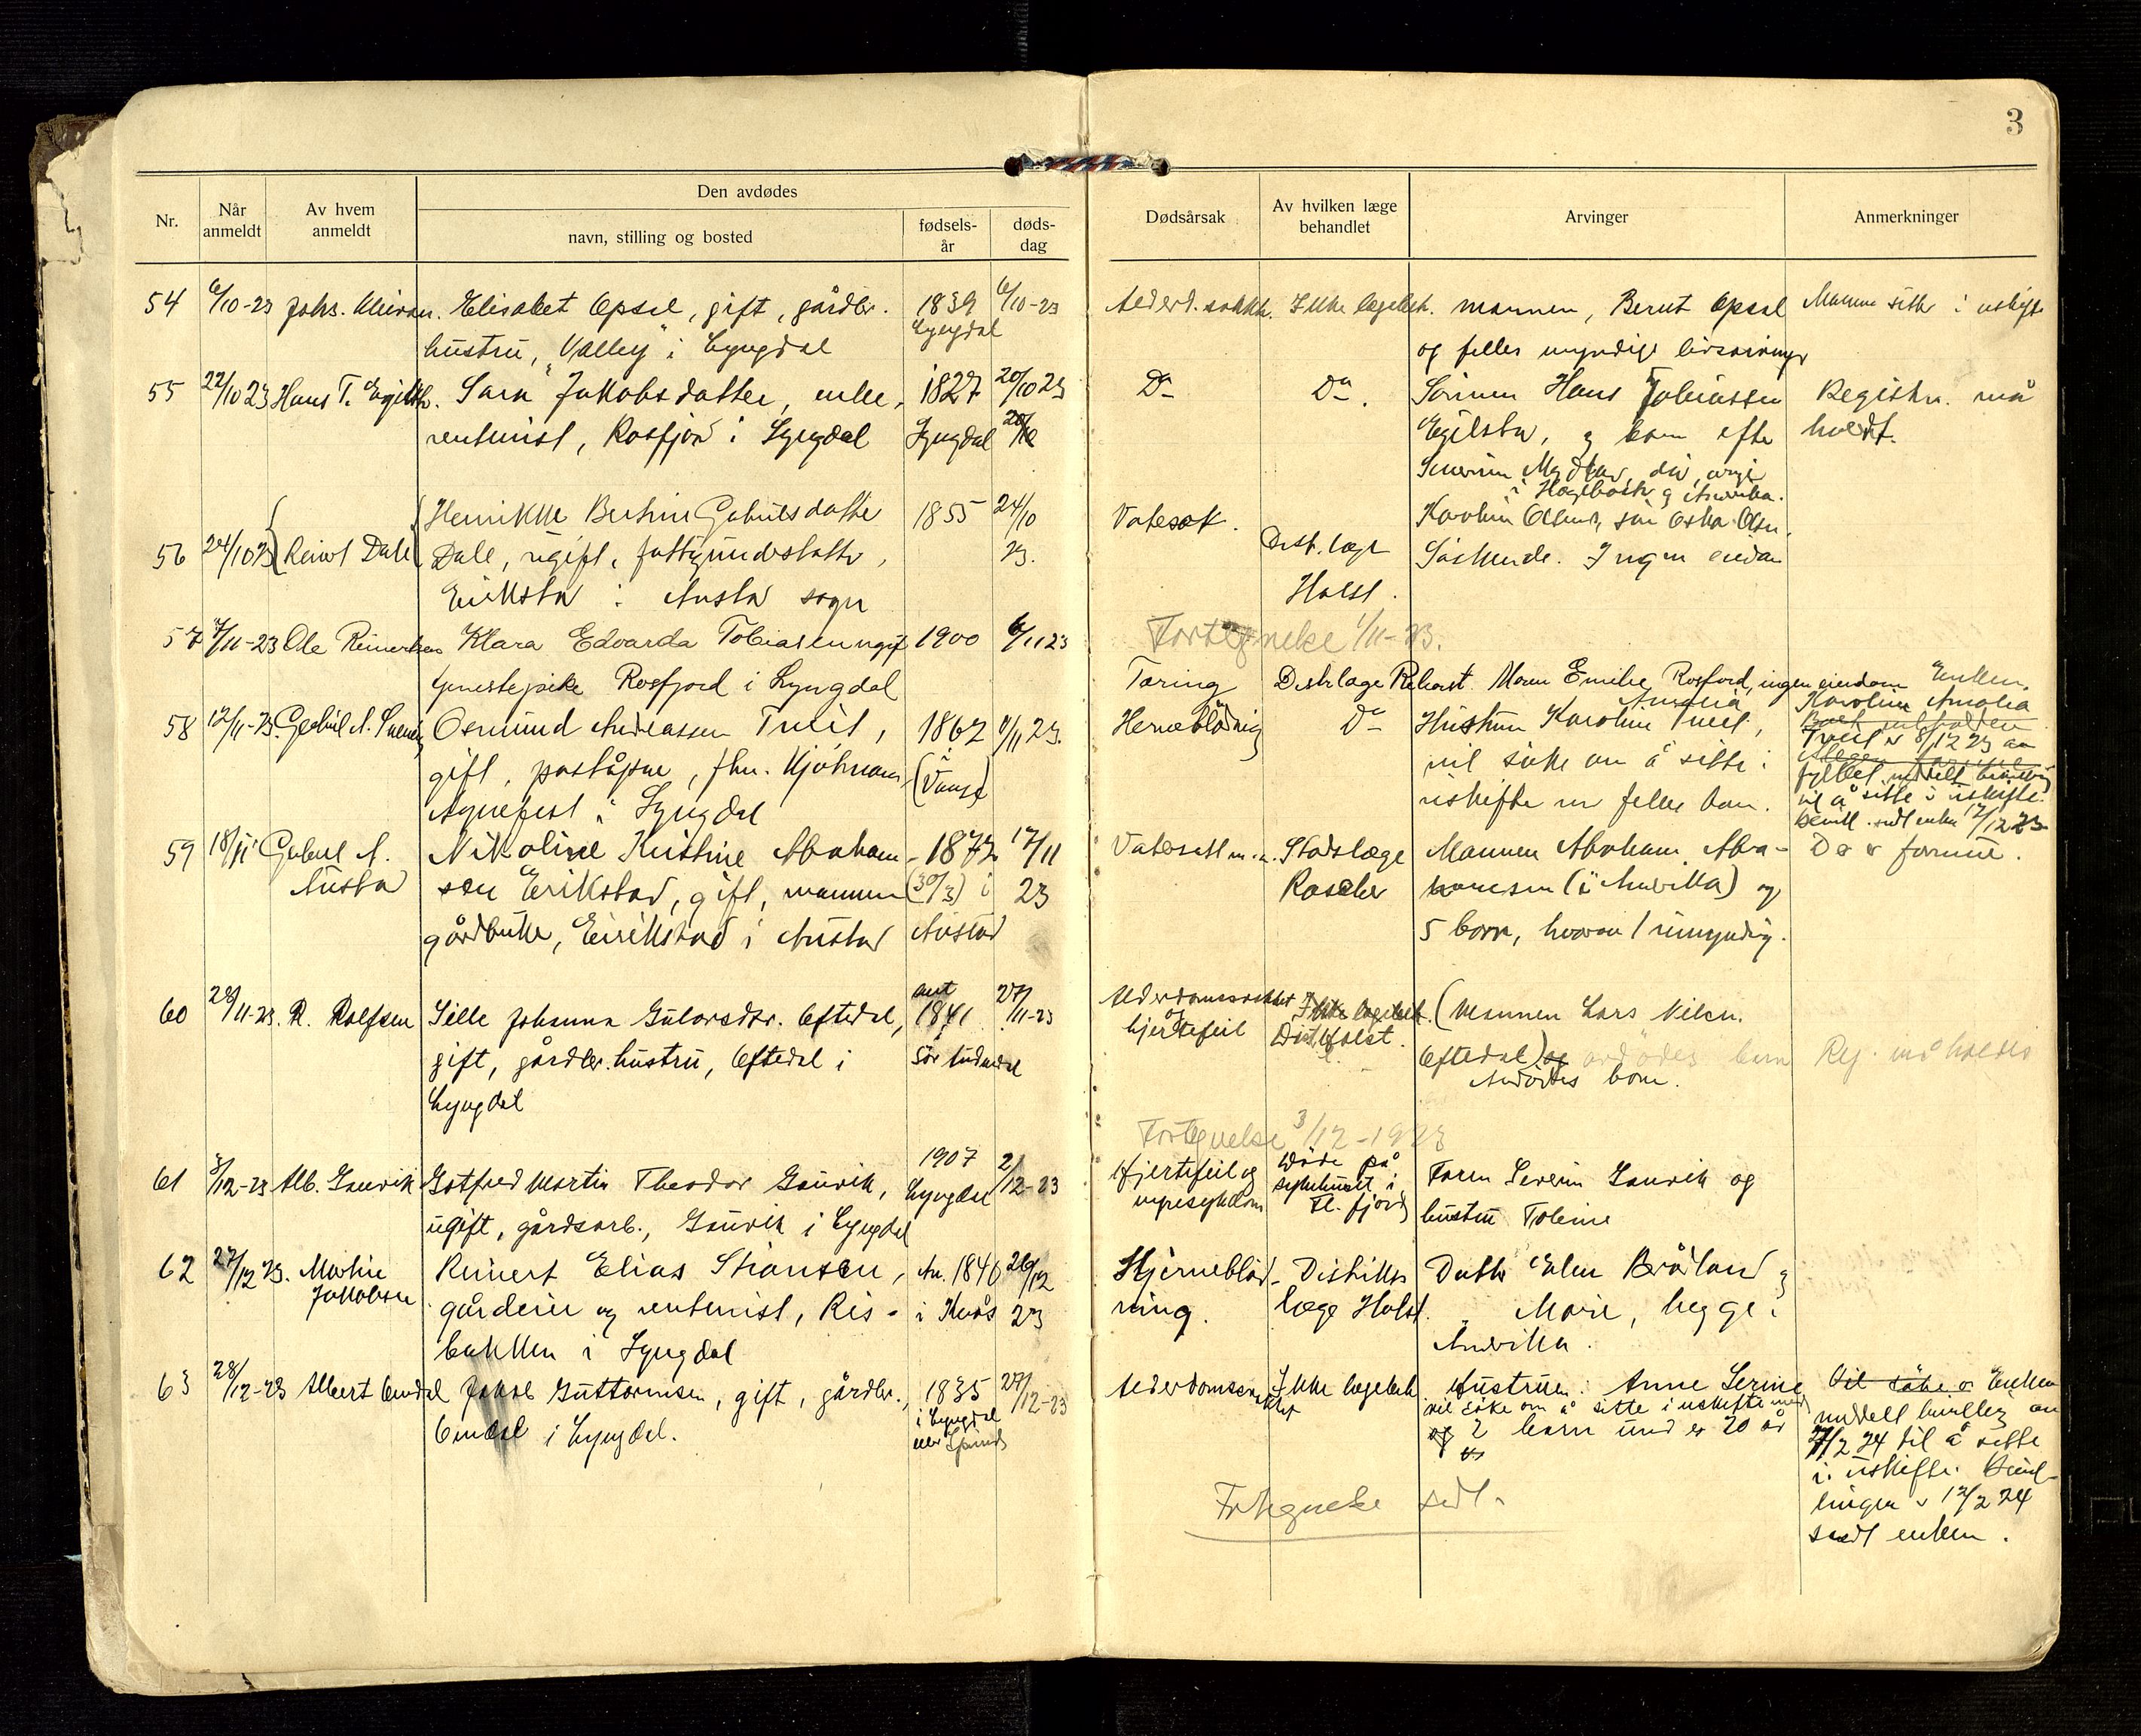 3
Nr.
Når anmeldt
Av hvem anmeldt
Den avdødes
navn, stilling og bosted
fødsels-år
døds-dag
Dødsårsak
Av hvilken læge behandlet
Arvinger
Anmerkninger
54 6/10-23 Johs. Elisabet Opsal, gift, gårdbr. 1839 6/10-23 Ikke lægebeh. mannen, Bernt Opsal Mannen sitter i uskifte
hustru, "Valley" i Lyngdal Lyngdal og felles myndige livsarvinger
55 22/10 23 Hans T. Egilstr. Sara Jakobsdatter, enke, 1827 20/10 23 Do Do. Sönnen Hans Tobiassen Registr. må
rentenist, Rosfjord i Lyngdal Lyngdal Egilsta, og barn efter holdt.
i Hægebostr og Amerika.
Henrikke Bertine Gabrielsdatter 1855 24/10 Vatersot. Karoline Olsens, sön Oskar Olsen,
56 24/10 23 Reinert Dale Dale, ugift, fattigunderstøtte, 23. Distr. læge Söskende. Ingen eiendom
Eirikstad i Austad sogn Holst.
57 7/11-23 Ole Reinertsen Klara Edvarda Tobiasen ugift 1900 6/11 23 Fortegnelse 1/11-23.
tjenestepike Rosfjord i Lyngdal Tæring Distrlæge Holst Maren Emilie Rosfjord, ingen eiendom Enken,
58 12/11-23. Gabriel A. Osmund Andreassen Tveit, 1862 11/11 23. Hernebløding Do Hustruen Karoline Amalia Tveit, Karoline Amalia
gift, poståpner, fhv. (Vanse) vil söke om å sitte i Tveit er 8/12 23 av
Agnefest i Lyngdal uskifte m felles barn. fylket meddelt bevilling
til å sitte i uskifte.
Bevill. sendt enken 12/12 23
59 18/11 Gabriel A. Nikoline Kristine Abraham- 1872 17/11 Vatersott m.m. Stadslæge Mannen Abraham Abra- Do er formue.
Austad sen Erikstad, gift, mannen (30/3) i 23 Roscher hamsen (i Amerika) og
gårdbruker, Eirikstad i Austad Austad 5 barn, hvorav 1 umyndig.
60 28/11-23. R. Rolfsen Sille Johanna Gulovsdtr. Oftedal, ant 1841 27/11-23 Alderdomssvakhet Ikke lægebeh. (Mannen Lars Nilsen
gift, gårdbr. hustru, Oftedal i Sör Audnedal og hjertefeil Distr. Holst. Oftedal) og avdödes barn Reg. må holdes
Lyngdal Avdödes barn.
Fortegnelse 3/12-1923
61 3/12-23 Alb. Gauvik Gotfred Martin Theodor Gauvik, 1907 2/12-23 Hjertefeil og Döde på Faren Severin Gauvik og
ugift, gårdsarb., Gauvik i Lyngdal Lyngdal nyresykdom sykehuset i Fl. fjord hustru Tobine
62 27/12 23. Martin Reinert Elias Stiansen, An. 1840 26/12 Hjerneblöd- Distrikts Datter Elen Bråland og
Jakobsen gårdeier og rentenist, Ris- i Kvås 23 ning. læge Holst. " Marie, begge i
bakken i Lyngdal Amerika.
63 28/12-23 Albert Omdal Jakob Guttormsen, gift, gårdbr., 1835 27/12-23 Alderdomssvakhet Ikke lægebeh. Hustruen: Anne Serine Vil söke o Enken
Omdal i Lyngdal. i Lyngdal eller Spind vil söke om å sitte i uskifte med meddelt bevilling av
og 2 barn und er 20 år 7/2 24 til å sitte
i uskifte. Bevil-
lingen er 12/2 24
Fortegnelse sendt. sendt enken.